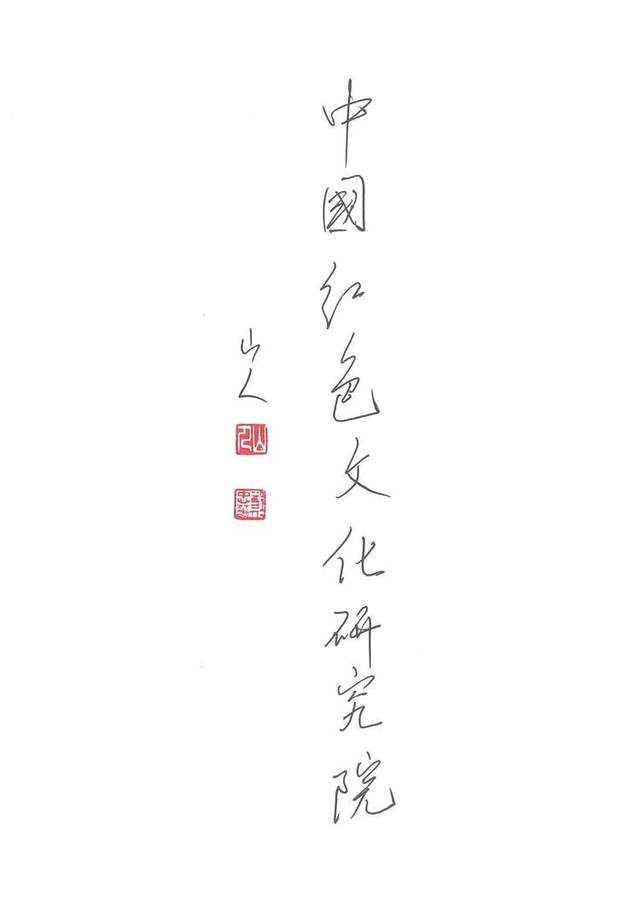 中國红色文化研究院
山人